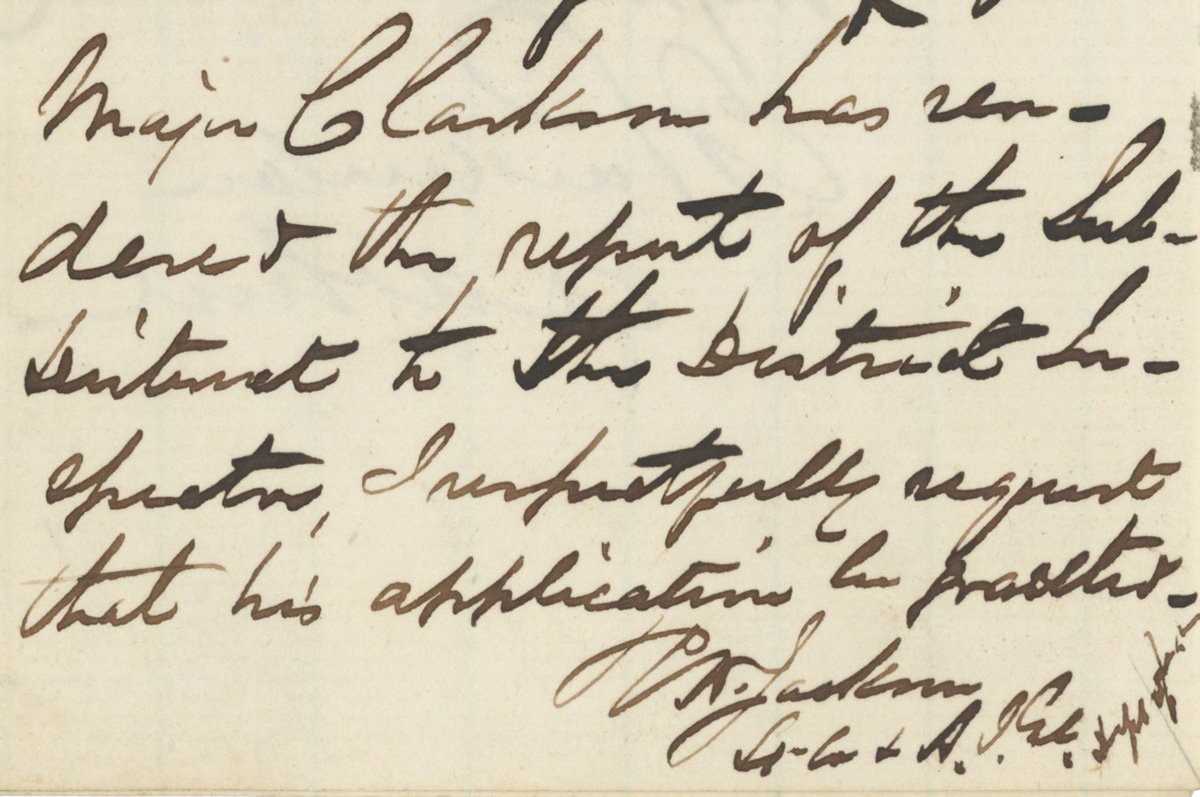 Major Clarkson has ren-
dered the report of the Sub-
District to the District In-
spector, I respectfully request
that his application be granted.
Jackson
Lt Co & A. I. Gel.